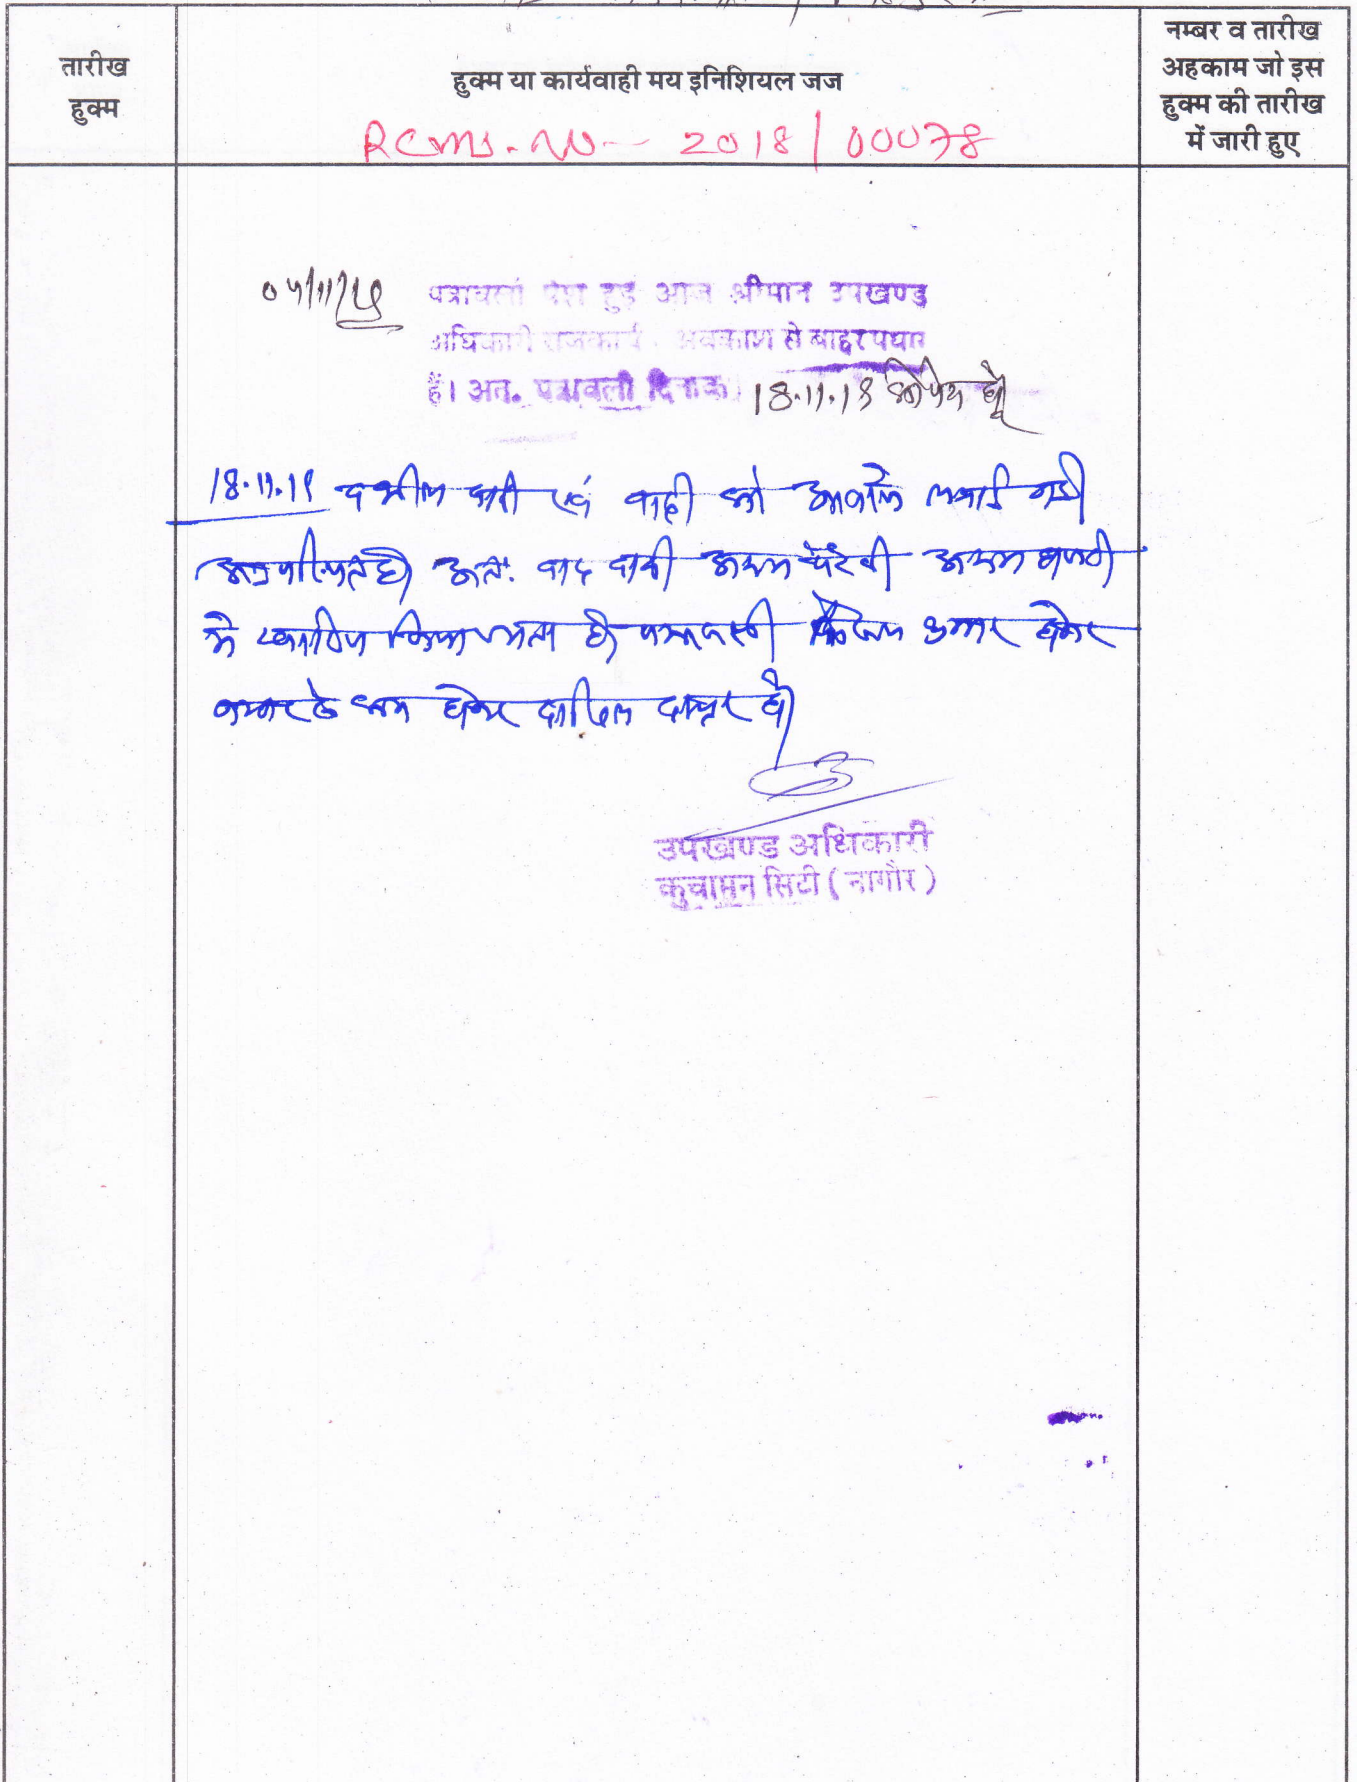 तारीख
हुक्म
हुक्म या कार्यवाही मय इनिशियल जज
नम्बर व तारीख
अहकाम जो इस
हुक्म की तारीख
में जारी हुए
RCMS. NO- 2018/00078
पत्रावली पेश हुई आज श्रीमान उपखण्ड
अधिकारी राजकार्य अवकाश से बाहर पधारे
हैं। अतः पत्रावली दिनांक 18.11.19 को पेश हो
18.11.19 वकील वादी एवं वादी को आवाजे लगाई गई
अनुपस्थित है अतः वाद वादी अदम पैरवी अदम
मे खारिज किया जाता है पत्रावली फैसल शुमार होकर
नम्बर से कम होकर दाखिल दफ्तर हो
उपखण्ड अधिकारी
कुचामन सिटी (नागौर)